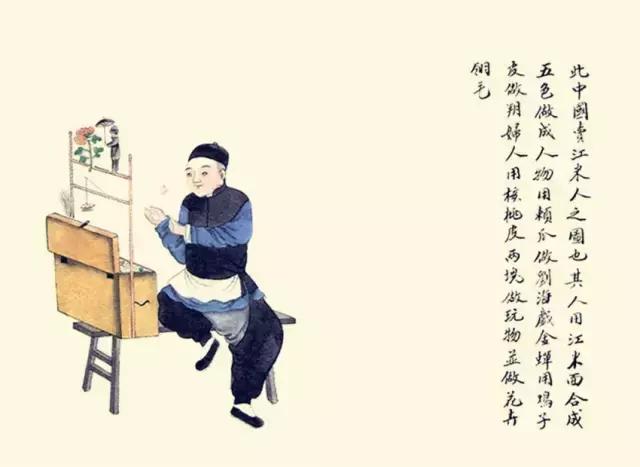 此中國賣江米人之圖也其人用江米面合成
五色做成人物用賴瓜做劉海戲金蟬用鴣子
皮做翔婦人用核桃皮两塊做玩物並做花卉
翎毛